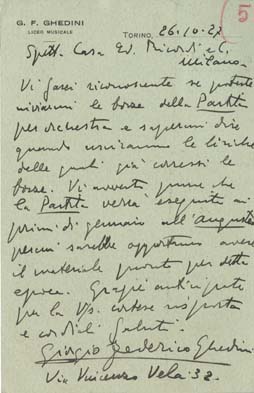 5
G. F. GHEDINI
LICEO MUSICALE
TORINO, 26.10.27
Spett. Casa Ed. Ricordi e C.
Milano
Vi sarei riconoscente se poteste
inviarmi le bozze della Partita
per orchestra e sapermi dire
quando usciranno le liriche
delle quali già corressi le
bozze. Vi avverto pure che
la Partita verrà eseguita ai
primi di gennaio all'Augusteo
percui sarebbe opportuno avere
il materiale pronto per detta
epoca. Grazie anticipate
per la Vs. cortese risposta
e cordiali saluti.
Giorgio Federico Ghedini
Via Vincenzo Vela 32.